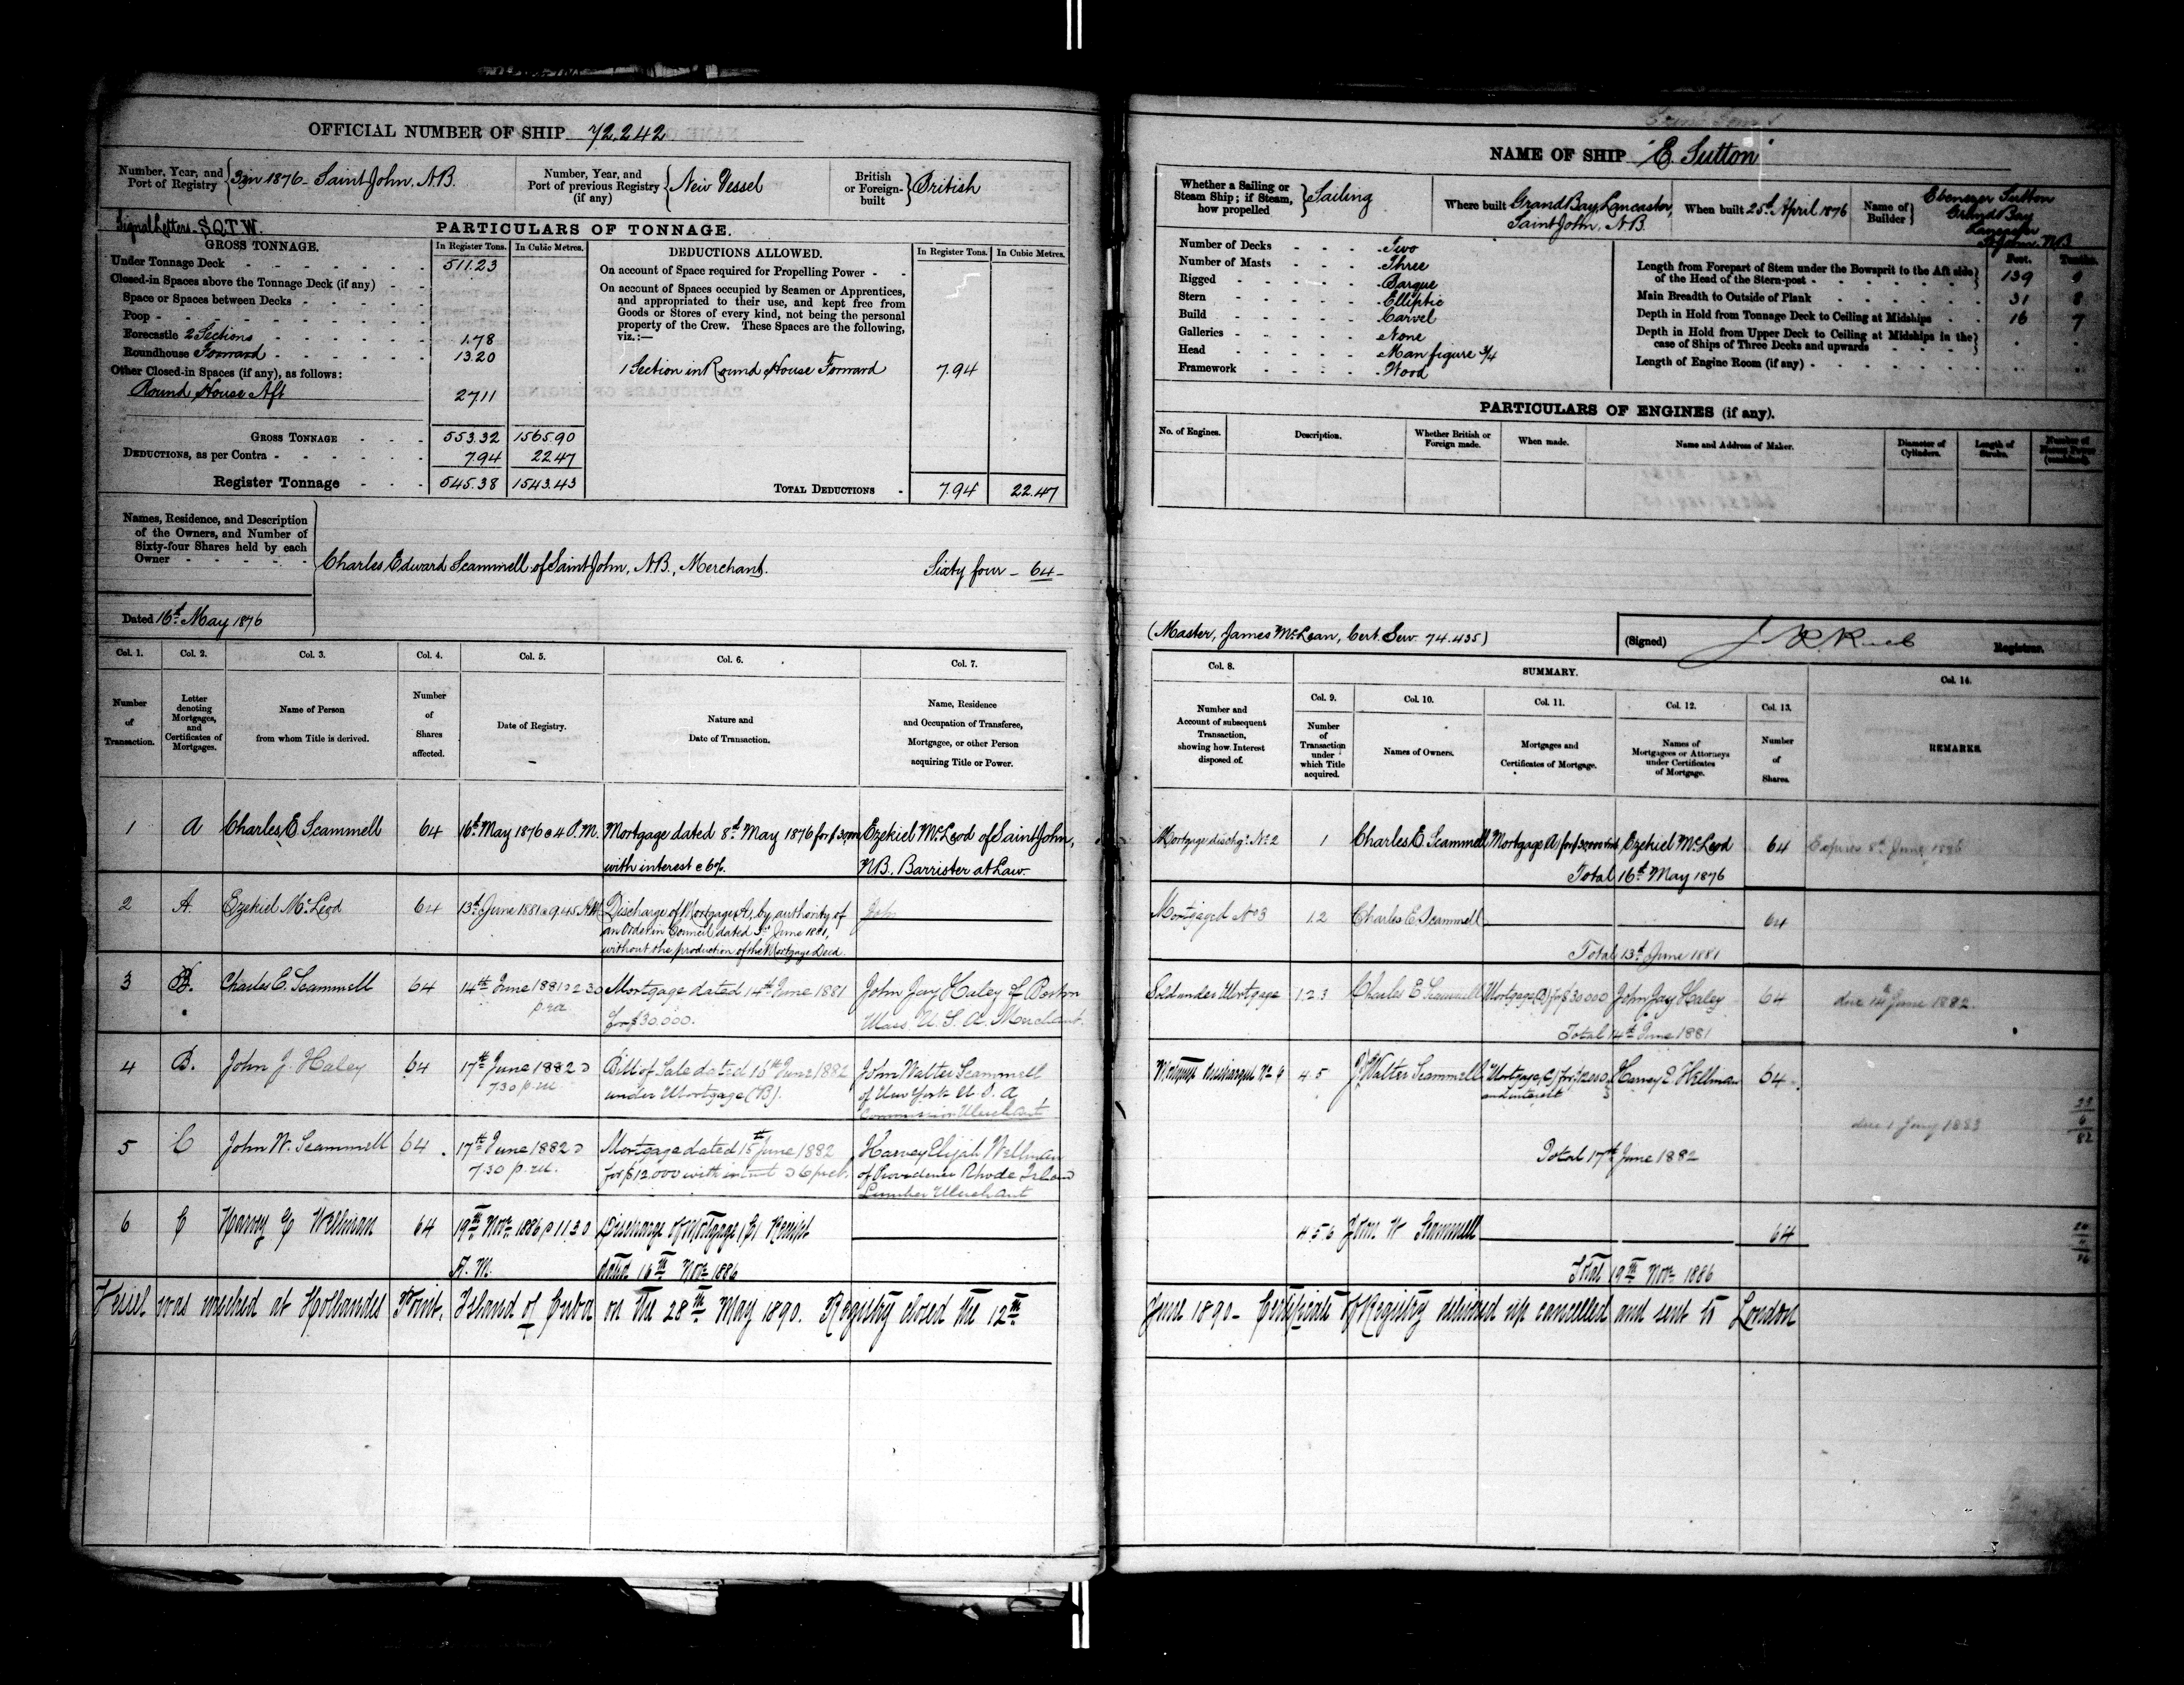 OFFICIAL NUMBER OF SHIP 72.242
Number, Year, and Port of Registry 1876 - Saint John, N.B.
Number, Year, and Port of previous Registry (if any) New Vessel
British or Foreign-built British
Signal Letters - S.Q.T.W.
PARTICULARS OF TONNAGE.
GROSS TONNAGE.
In Register Tons. In Cubic Metres.
Under Tonnage Deck 511.23
Closed-in Spaces above the Tonnage Deck (if any)
Space or Spaces between Decks
Poop
Forecastle 2 Sections 1.78
Roundhouse Forward 13.20
Other Closed-in Spaces (if any), as follows:
Round House Aft 27.11
GROSS TONNAGE 553.32 1565.90
DEDUCTIONS, as per Contra 7.94 22.47
Register Tonnage 545.38 1543.43
DEDUCTIONS ALLOWED.
In Register Tons. In Cubic Metres.
On account of Space required for Propelling Power
On account of Spaces occupied by Seamen or Apprentices,
and appropriated to their use, and kept free from
Goods or Stores of every kind, not being the personal
property of the Crew. These Spaces are the following,
viz.:—
1 Section in Round House Forward 7.94
TOTAL DEDUCTIONS 7.94 22.47
Names, Residence, and Description
of the Owners, and Number of
Sixty-four Shares held by each
Owner
Charles Edward Scammell of Saint John, N.B., Merchant. Sixty four - 64 -
Dated 16th May 1876
Col. 1. Col. 2. Col. 3. Col. 4. Col. 5. Col. 6. Col. 7.
Number of Transaction.
Letter denoting Mortgages, and Certificates of Mortgages.
Name of Person from whom Title is derived.
Number of Shares affected.
Date of Registry.
Nature and Date of Transaction.
Name, Residence and Occupation of Transferee, Mortgagee, or other Person acquiring Title or Power.
1 A Charles E. Scammell 64 16th May 1876 @ 4 P.M. Mortgage dated 8th May 1876 for Ezekiel McLeod of Saint John,
with interest @ 6%. N.B., Barrister at Law.
2 A. Ezekiel McLeod 64 13th June 1881 @ 9.45 A.M. Discharge of Mortgage A, by authority of John
an Order in Council dated 3d June 1881,
without the production of the Mortgage Deed.
3 B. Charles E. Scammell 64 14th June 1881 @ 2.30 p.m. Mortgage dated 14th June 1881 John Jay Haley of Boston
for $30.000. Mass. U.S.A. Merchant.
4 B. John J. Haley 64 17th June 1882 @ 7.30 p.m. Bill of Sale dated 15th June 1882 John Walter Scammell
under Mortgage (B). of New York U.S.A
Commission Merchant
5 C John W. Scammell 64 17th June 1882 @ 7.30 p.m. Mortgage dated 15th June 1882 Harvey Elijah Wellman
for $12.000 with interest @ 6 p.ct. of Providence Rhode Island
Lumber Merchant
6 C Harvey E Wellman 64 19th Novr 1886 @ 11.30 A.M. Discharge of Mortgage (C) Receipt
dated 16th Novr 1886
Vessel was wrecked at Hollandes Point, Island of Cuba on the 28th May 1890. Registry closed the 12th
NAME OF SHIP "E. Sutton"
Whether a Sailing or Steam Ship; if Steam, how propelled Sailing
Where built Grand Bay, Lancaster, Saint John, N.B.
When built 25th April 1876
Name of Builder Ebenezer Sutton
Grand Bay
Lancaster
St John N.B.
Number of Decks Two
Number of Masts Three
Rigged Barque
Stern Elliptic
Build Carvel
Galleries None
Head Man figure 3/4
Framework Wood
Feet. Tenths.
Length from Forepart of Stem under the Bowsprit to the Aft side of the Head of the Stern-post 139 9
Main Breadth to Outside of Plank 31 8
Depth in Hold from Tonnage Deck to Ceiling at Midships 16 7
Depth in Hold from Upper Deck to Ceiling at Midships in the case of Ships of Three Decks and upwards
Length of Engine Room (if any)
PARTICULARS OF ENGINES (if any).
No. of Engines. Description. Whether British or Foreign made. When made. Name and Address of Maker. Diameter of Cylinders. Length of Stroke. Number of Horses Power (combined).
(Master, James McLean, Cert. Serv. 74.435)
(Signed) Registrar.
Col. 8. SUMMARY. Col. 14.
Col. 9. Col. 10. Col. 11. Col. 12. Col. 13.
Number and Account of subsequent Transaction, showing how Interest disposed of.
Number of Transaction under which Title acquired.
Names of Owners.
Mortgages and Certificates of Mortgage.
Names of Mortgagees or Attorneys under Certificates of Mortgage.
Number of Shares.
REMARKS.
Mortgage dischgd. No 2 1 Charles E. Scammell Mortgage (A) for $30000 Ezekiel McLeod 64 Expires 8th June
Total 16th May 1876
Mortgaged No 3 1.2 Charles E. Scammell 64
Total 13th June 1881
Sold under Mortgage 1.2.3 Charles E Scammell Mortgage (B) for $30000 John Jay Haley 64 due 14th June 1882.
Total 14th June 1881
Mortgage discharged No 6 4.5 J. Walter Scammell Mortgage (C) for $12000 and interest Harvey E. Wellman 64
due 1 Jany 1883
23
6
82
Total 17th June 1882
4.5.6 John W Scammell 64
Total 19th Novr 1886
June 1890 - Certificate of Registry delivered up cancelled and sent to London